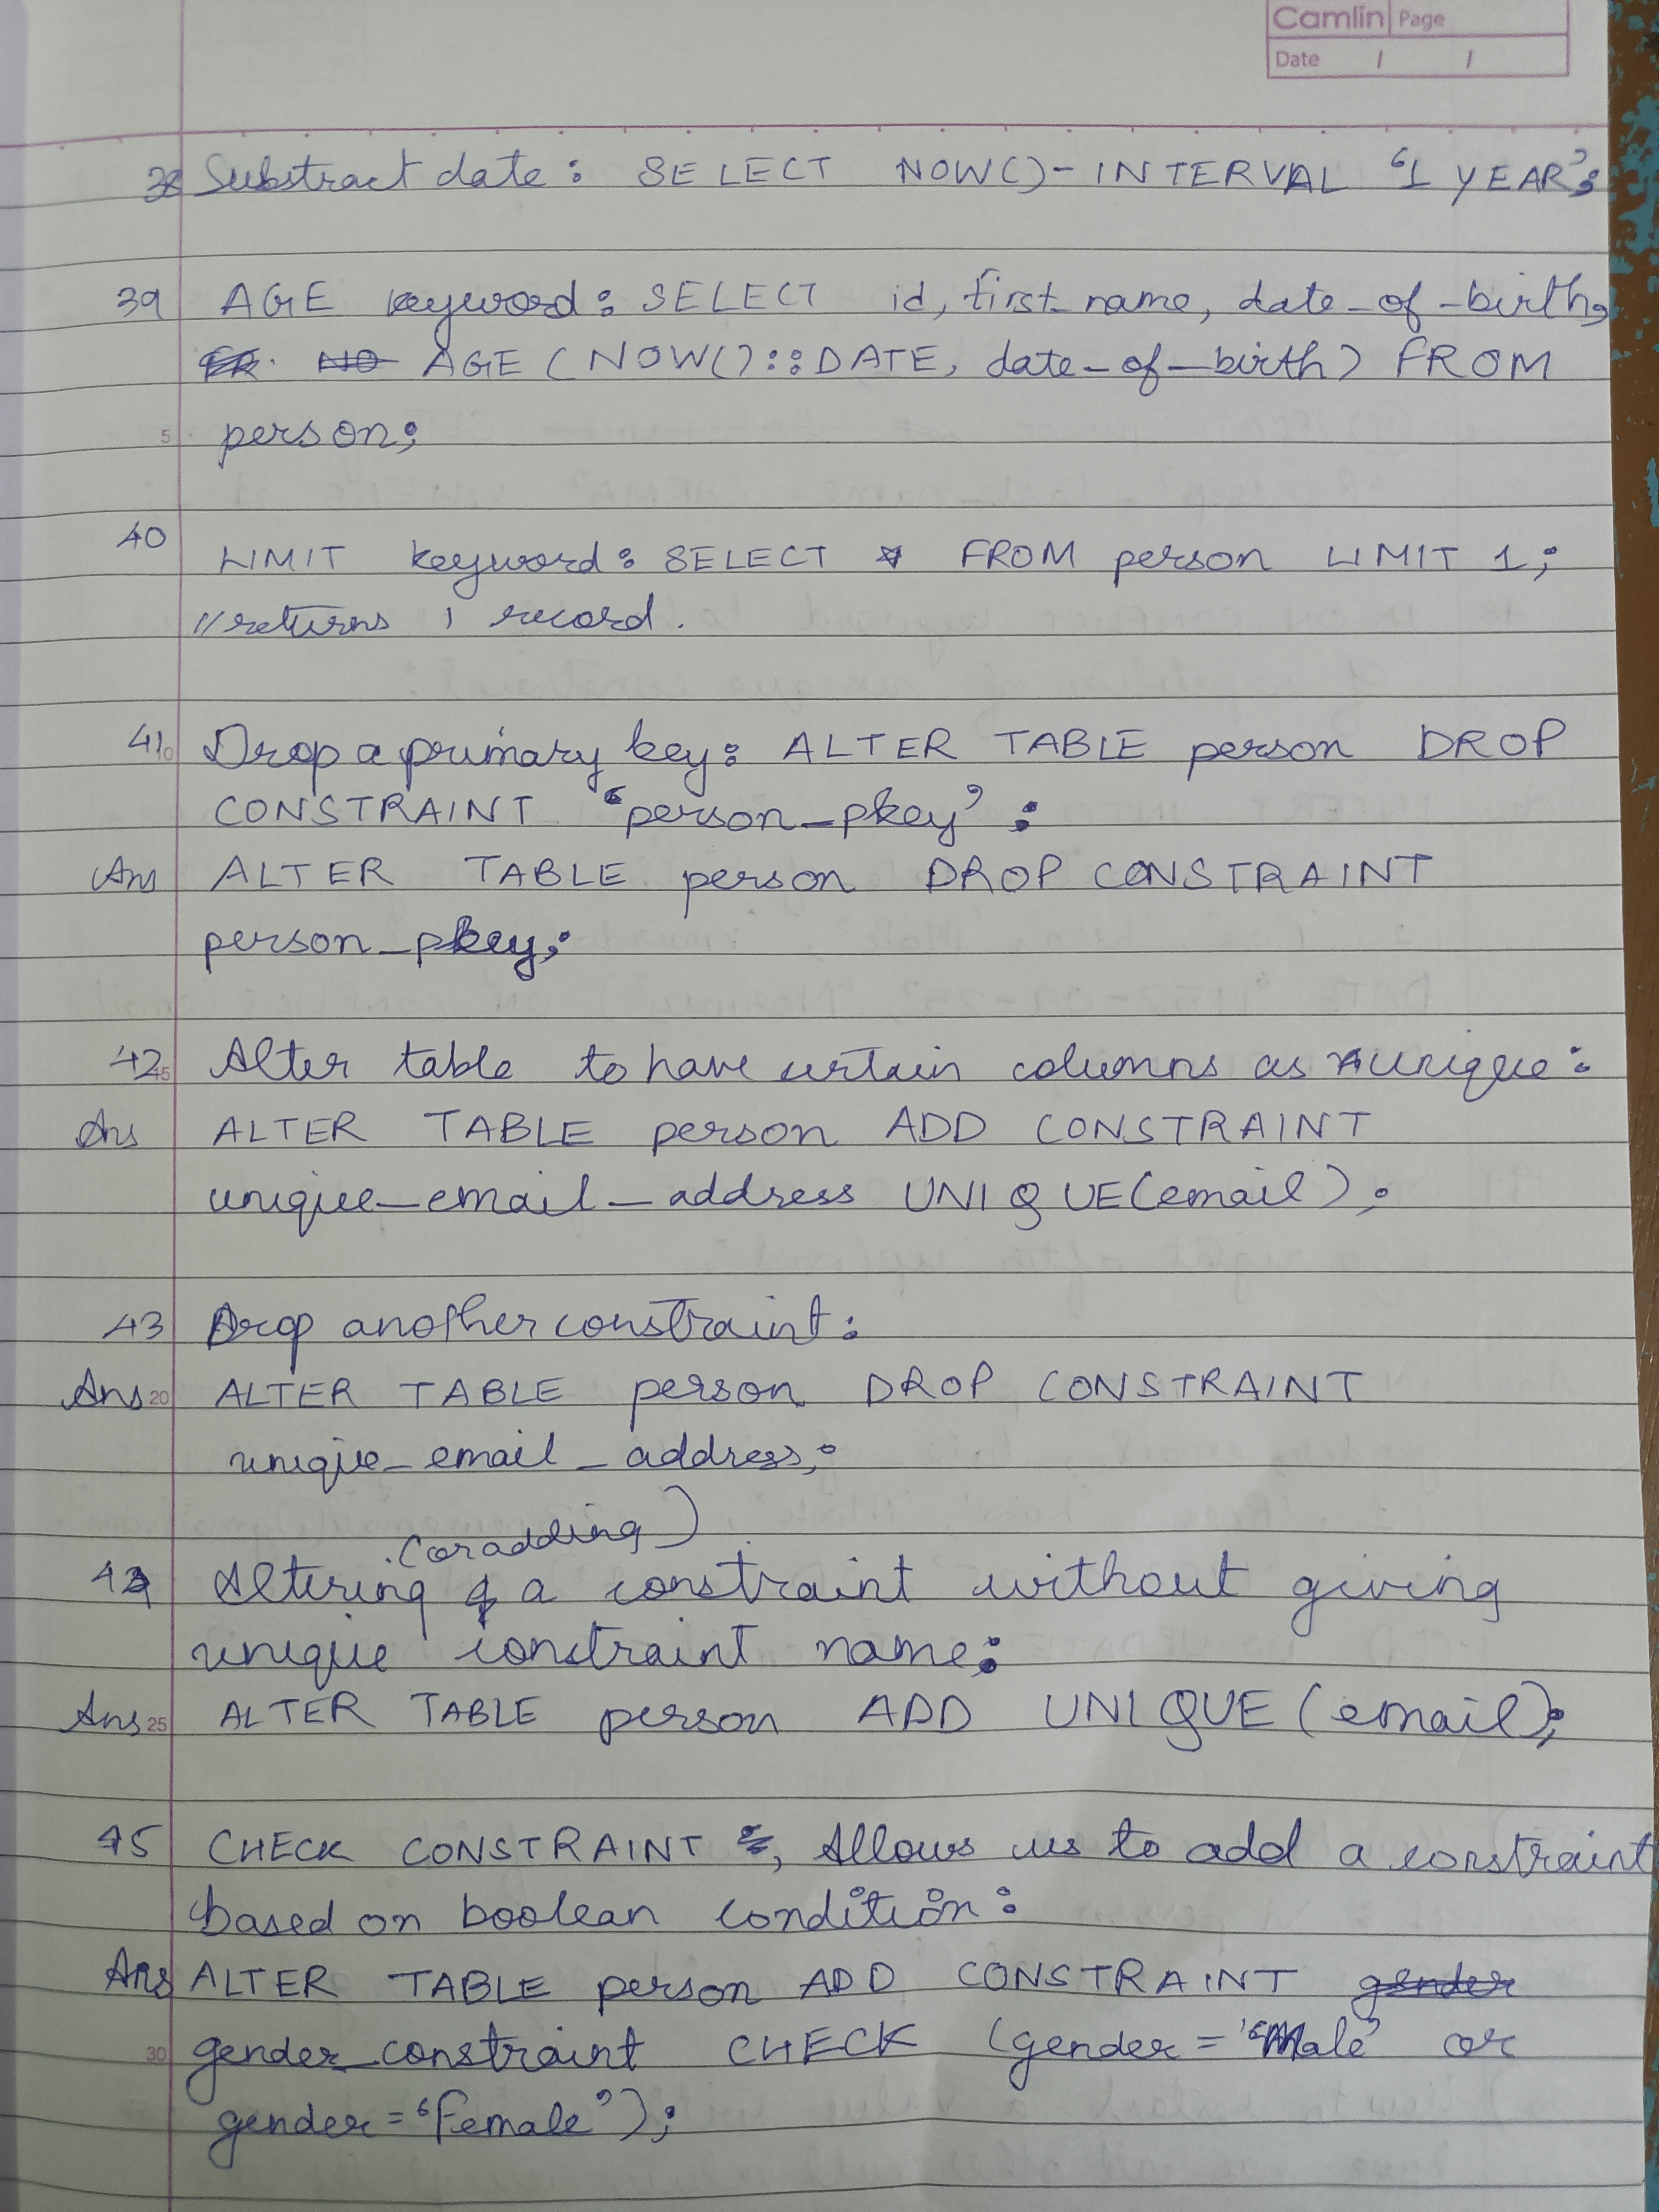 Camlin Page
Date / /
38 Substract date: SELECT NOW()-INTERVAL '1 YEAR';
39 AGE keyword: SELECT id, first_name, date_of_birth,
AGE (NOW()::DATE, date_of_birth) FROM
5 person;
40 LIMIT keyword: SELECT * FROM person LIMIT 1;
//returns 1 record.
41 10 Drop a primary key: ALTER TABLE person DROP
CONSTRAINT 'person_pkey' :
Ans ALTER TABLE person DROP CONSTRAINT
person_pkey;
42 15 Alter table to have certain columns as unique:
Ans ALTER TABLE person ADD CONSTRAINT
unique_email_address UNIQUE(email);
43 Drop another constraint:
Ans 20 ALTER TABLE person DROP CONSTRAINT
unique_email_address;
(or adding)
44 Altering a constraint without giving
unique constraint name:
Ans 25 ALTER TABLE person ADD UNIQUE (email);
45 CHECK CONSTRAINT, Allows us to add a constraint
based on boolean condition:
Ans ALTER TABLE person ADD CONSTRAINT gender
30 gender_constraint CHECK (gender = 'Male' or
gender = 'Female');